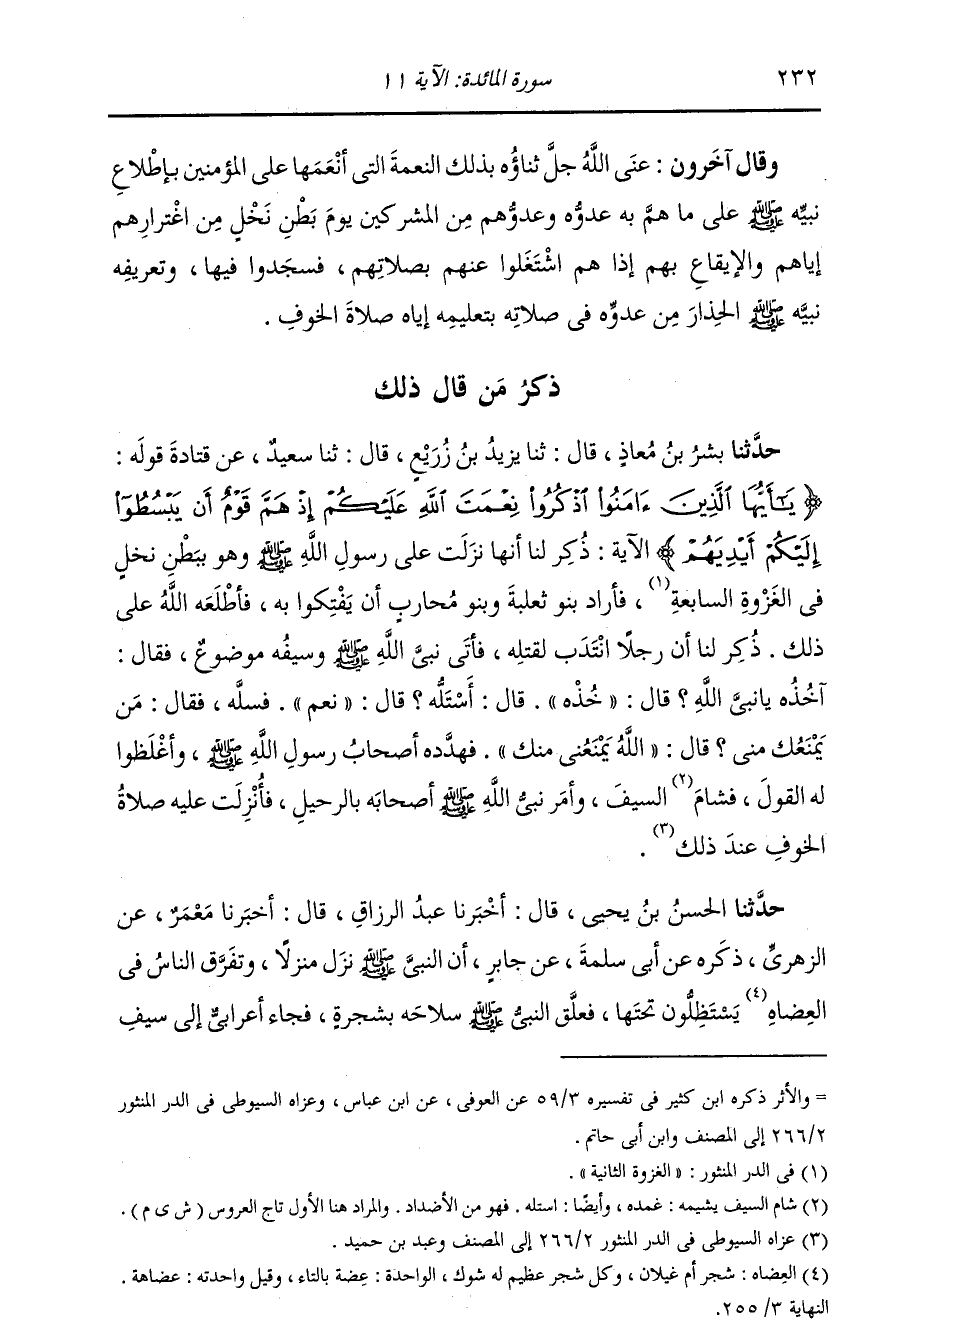 ٢٣٢ سورة المائدة: الآية ١١
وقال آخَرون : عنَى اللَّهُ جلَّ ثناؤُه بذلك النعمةَ التى أنْعَمَها على المؤمنين بإطْلاعِ
نبيِّه ﷺ على ما همَّ به عدوُّه وعدوُّهم مِن المشركين يومَ بَطْنِ نَخْلٍ مِن اغْتِرارِهم
إياهم والإيقاعِ بهم إذا هم اشْتَغَلوا عنهم بصلاتِهم ، فسجَدوا فيها ، وتعريفِه
نبيَّه ﷺ الحِذارَ مِن عدوِّه فى صلاتِه بتعليمِه إياه صلاةَ الخوفِ .
ذكرُ مَن قال ذلك
حدَّثنا بشرُ بنُ مُعاذٍ ، قال : ثنا يزيدُ بنُ زُرَيْعٍ ، قال : ثنا سعيدٌ ، عن قتادةَ قولَه :
﴿ يَٰٓأَيُّهَا ٱلَّذِينَ ءَامَنُوا۟ ٱذْكُرُوا۟ نِعْمَتَ ٱللَّهِ عَلَيْكُمْ إِذْ هَمَّ قَوْمٌ أَن يَبْسُطُوٓا۟
إِلَيْكُمْ أَيْدِيَهُمْ ﴾ الآية : ذُكِر لنا أنها نزَلَت على رسولِ اللَّهِ ﷺ وهو ببَطْنِ نخلٍ
فى الغَزْوةِ السابعةِ (١) ، فأراد بنو ثعلبةَ وبنو مُحاربٍ أن يَفْتِكوا به ، فأطْلَعَه اللَّهُ على
ذلك . ذُكِر لنا أن رجلًا انْتَدَب لقتلِه ، فأتَى نبىَّ اللَّهِ ﷺ وسيفُه موضوعٌ ، فقال :
آخُذُه يانبىَّ اللَّهِ ؟ قال : « خُذْه » . قال : أَسْتَلُّه ؟ قال : « نعم » . فسلَّه ، فقال : مَن
يَمْنَعُك منى ؟ قال : « اللَّهُ يَمْنَعُنى منك » . فهدَّده أصحابُ رسولِ اللَّهِ ﷺ ، وأغْلَظوا
له القولَ ، فشامَ (٢) السيفَ ، وأمَر نبىُّ اللَّهِ ﷺ أصحابَه بالرحيلِ ، فأُنْزِلَت عليه صلاةُ
الخوفِ عندَ ذلك (٣) .
حدَّثنا الحسنُ بنُ يحيى ، قال : أخْبَرنا عبدُ الرزاقِ ، قال : أخبَرنا مَعْمَرٌ ، عن
الزهرىِّ ، ذكَره عن أبى سلمةَ ، عن جابرٍ ، أن النبىَّ ﷺ نزَل منزلًا ، وتفَرَّق الناسُ فى
العِضاهِ (٤) يَسْتَظِلُّون تحتَها ، فعلَّق النبىُّ ﷺ سلاحَه بشجرةٍ ، فجاء أعرابىٌّ إلى سيفِ
= والأثر ذكره ابن كثير فى تفسيره ٥٩/٣ عن العوفى ، عن ابن عباس ، وعزاه السيوطى فى الدر المنثور
٢٦٦/٢ إلى المصنف وابن أبى حاتم .
(١) فى الدر المنثور : « الغزوة الثانية » .
(٢) شام السيف يشيمه : غمده ، وأيضًا : استله . فهو من الأضداد . والمراد هنا الأول تاج العروس ( ش ى م ) .
(٣) عزاه السيوطى فى الدر المنثور ٢٦٦/٢ إلى المصنف وعبد بن حميد .
(٤) العِضاه : شجر أم غيلان ، وكل شجر عظيم له شوك ، الواحدة : عِضة بالتاء ، وقيل واحدته : عضاهة .
النهاية ٢٥٥/٣.